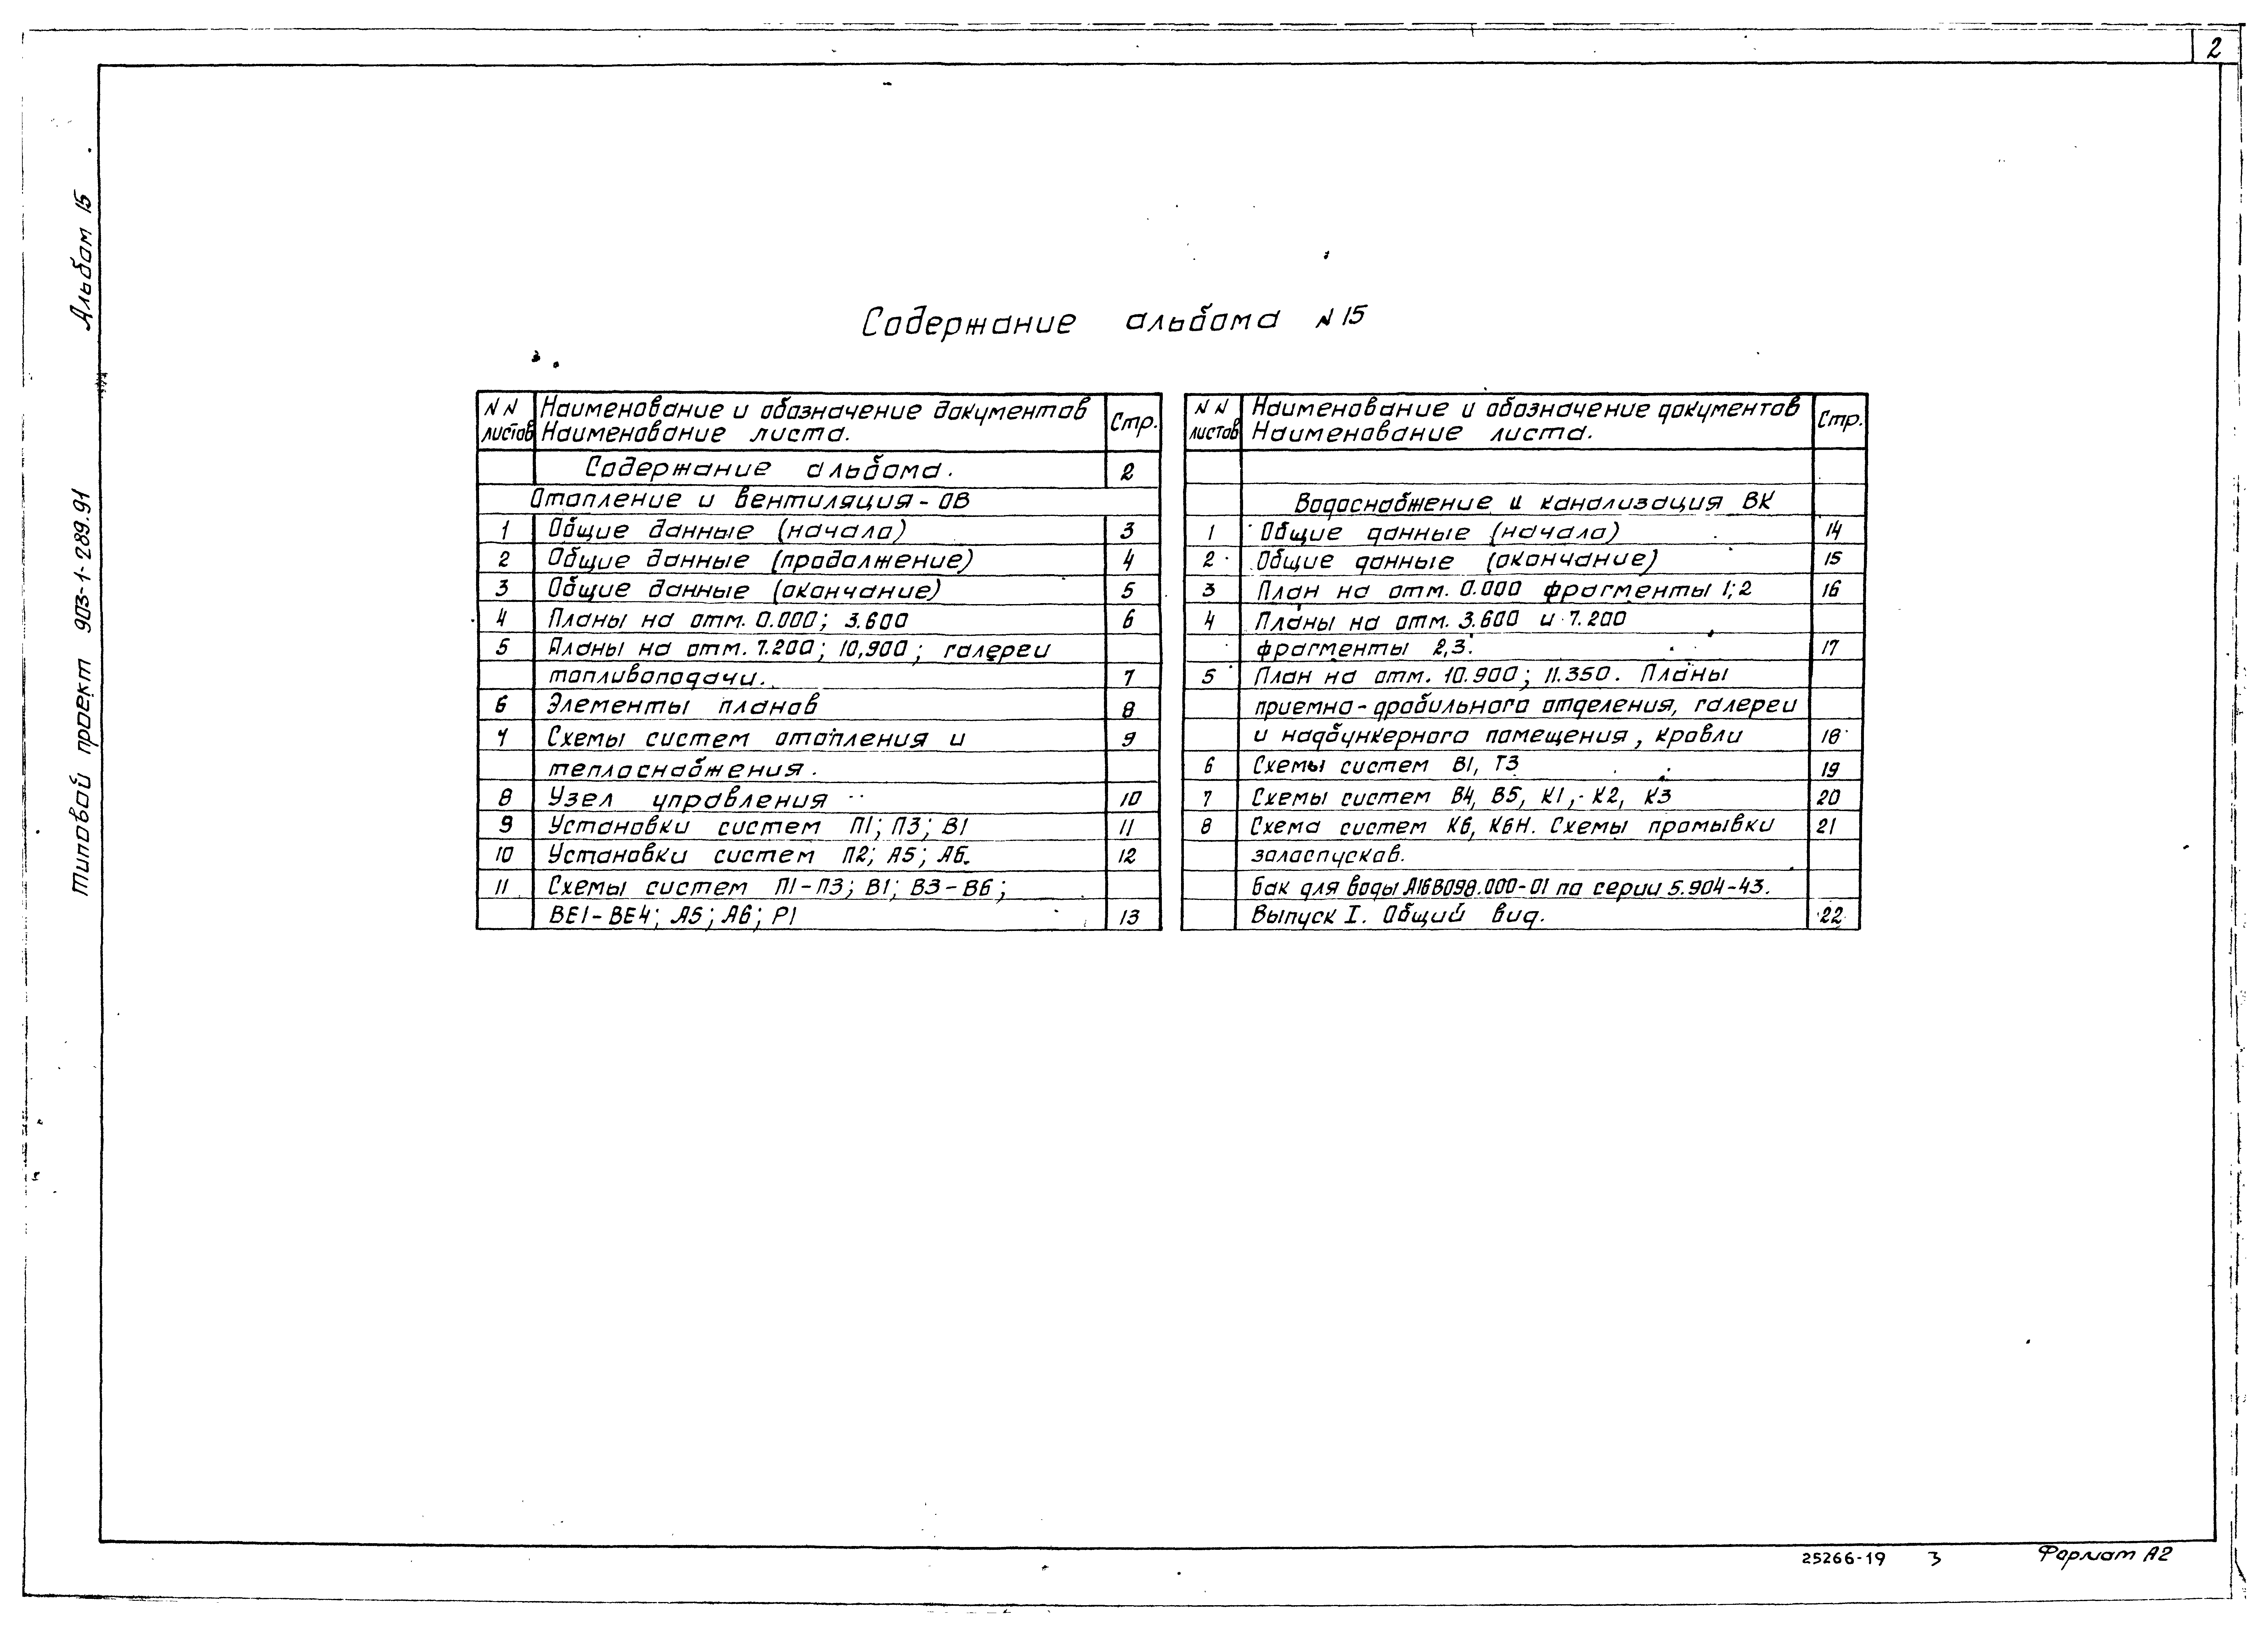 2
Альбом 15
Типовой проект 903-1-289.91
Содержание альбома N 15
N N листов Наименование и обозначение документов Стр.
Наименование листа.
Содержание альбома. 2
Отопление и вентиляция - ОВ
1 Общие данные (начало) 3
2 Общие данные (продолжение) 4
3 Общие данные (окончание) 5
4 Планы на отм. 0.000; 3.600 6
5 Планы на отм. 7.200; 10,900; галереи
топливоподачи. 7
6 Элементы планов 8
7 Схемы систем отопления и 9
теплоснабжения.
8 Узел управления 10
9 Установки систем П1; П3; В1 11
10 Установки систем П2; А5; А6. 12
11 Схемы систем П1-П3; В1; В3-В6;
ВЕ1-ВЕ4; А5; А6; Р1 13
N N листов Наименование и обозначение документов Стр.
Наименование листа.
Водоснабжение и канализация ВК
1 Общие данные (начало) 14
2 Общие данные (окончание) 15
3 План на отм. 0.000 фрагменты 1; 2 16
4 Планы на отм. 3.600 и 7.200
фрагменты 2,3. 17
5 План на отм. 10.900; 11.350. Планы
приемно-дробильного отделения, галереи
и надбункерного помещения, кровли 18
6 Схемы систем В1, Т3 19
7 Схемы систем В4, В5, К1, К2, К3 20
8 Схема систем К6, К6Н. Схемы промывки 21
золоспусков.
Бак для воды А16В098.000-01 по серии 5.904-43.
Выпуск I. Общий вид. 22
25266-19 3 Формат А2